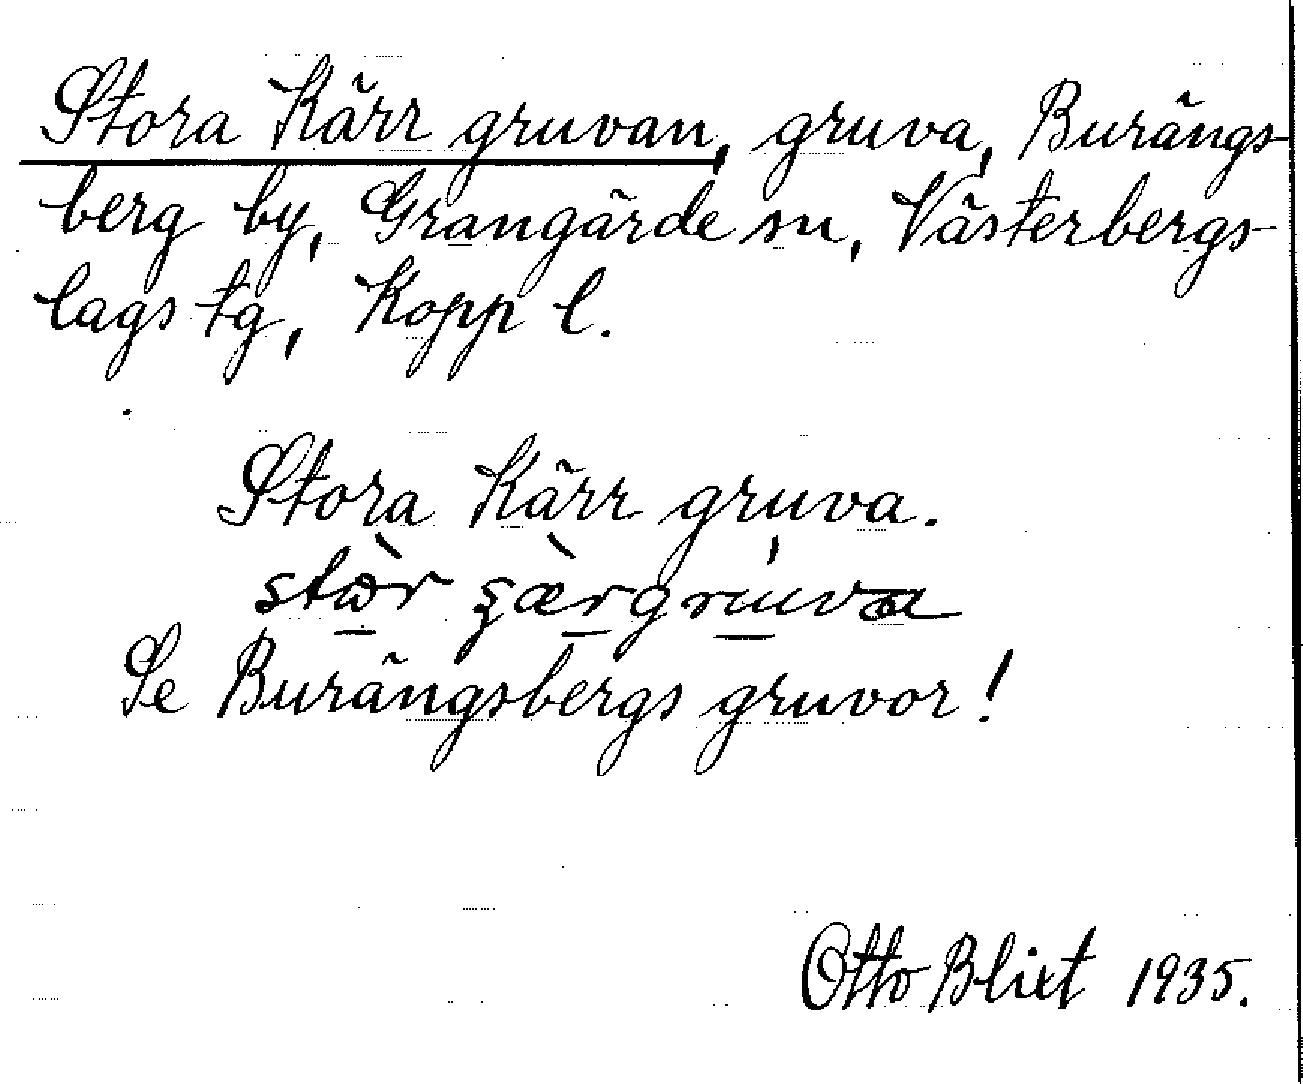 Stora Kärr gruvan, gruva, Burängs-
berg by, Grangärde sn, Västerbergs-
lags tg, Kopp l.
Stora Kärr gruva.
Se Burängsbergs gruvor!
Otto Blixt 1935.